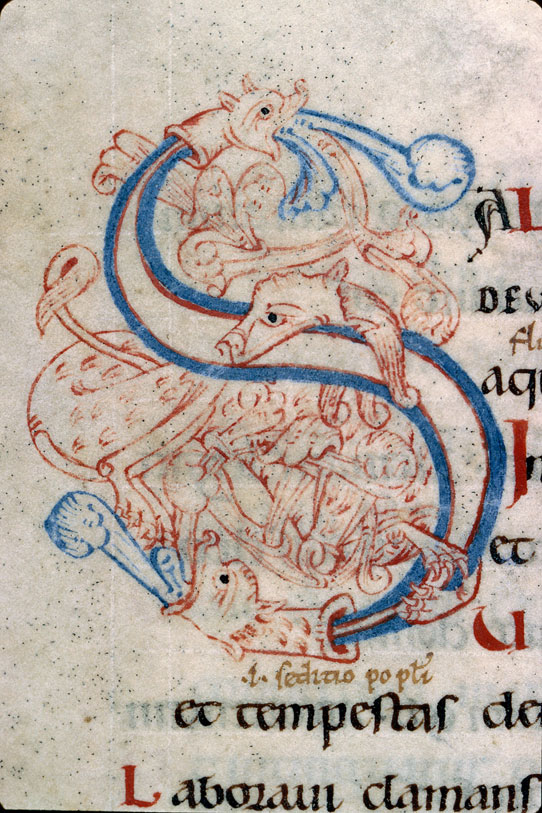 S AL
DEU
aqu
In
et
U
.i. seditio popl̄i
et tempestas de
Laboraui clamans